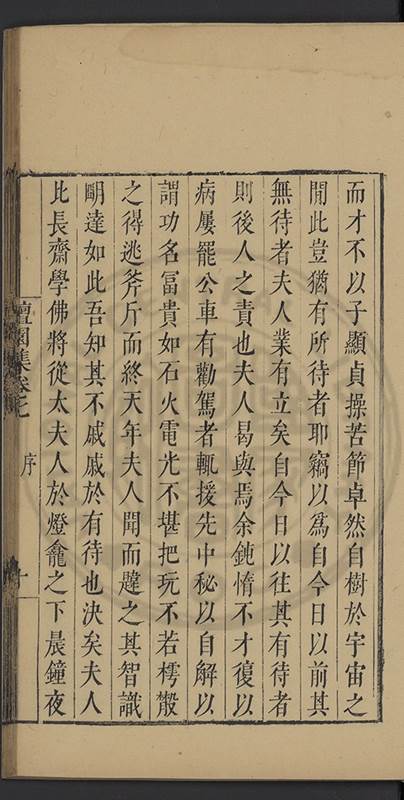 而才不以子顯貞操苦節卓然自樹於宇宙之
間此豈猶有所待者耶竊以為自今日以前其
無待者夫人業有立矣自今日以往其有待者
則後人之責也夫人曷與焉余鈍惰不才復以
病屢罷公車有勸駕者輒援先中秘以自解以
謂功名富貴如石火電光不堪把玩不若樗散
之得逃斧斤而終天年夫人聞而韙之其智識
明達如此吾知其不戚戚於有待也決矣夫人
比長齋學佛將從太夫人於燈龕之下晨鐘夜
檀園集卷七 序 十